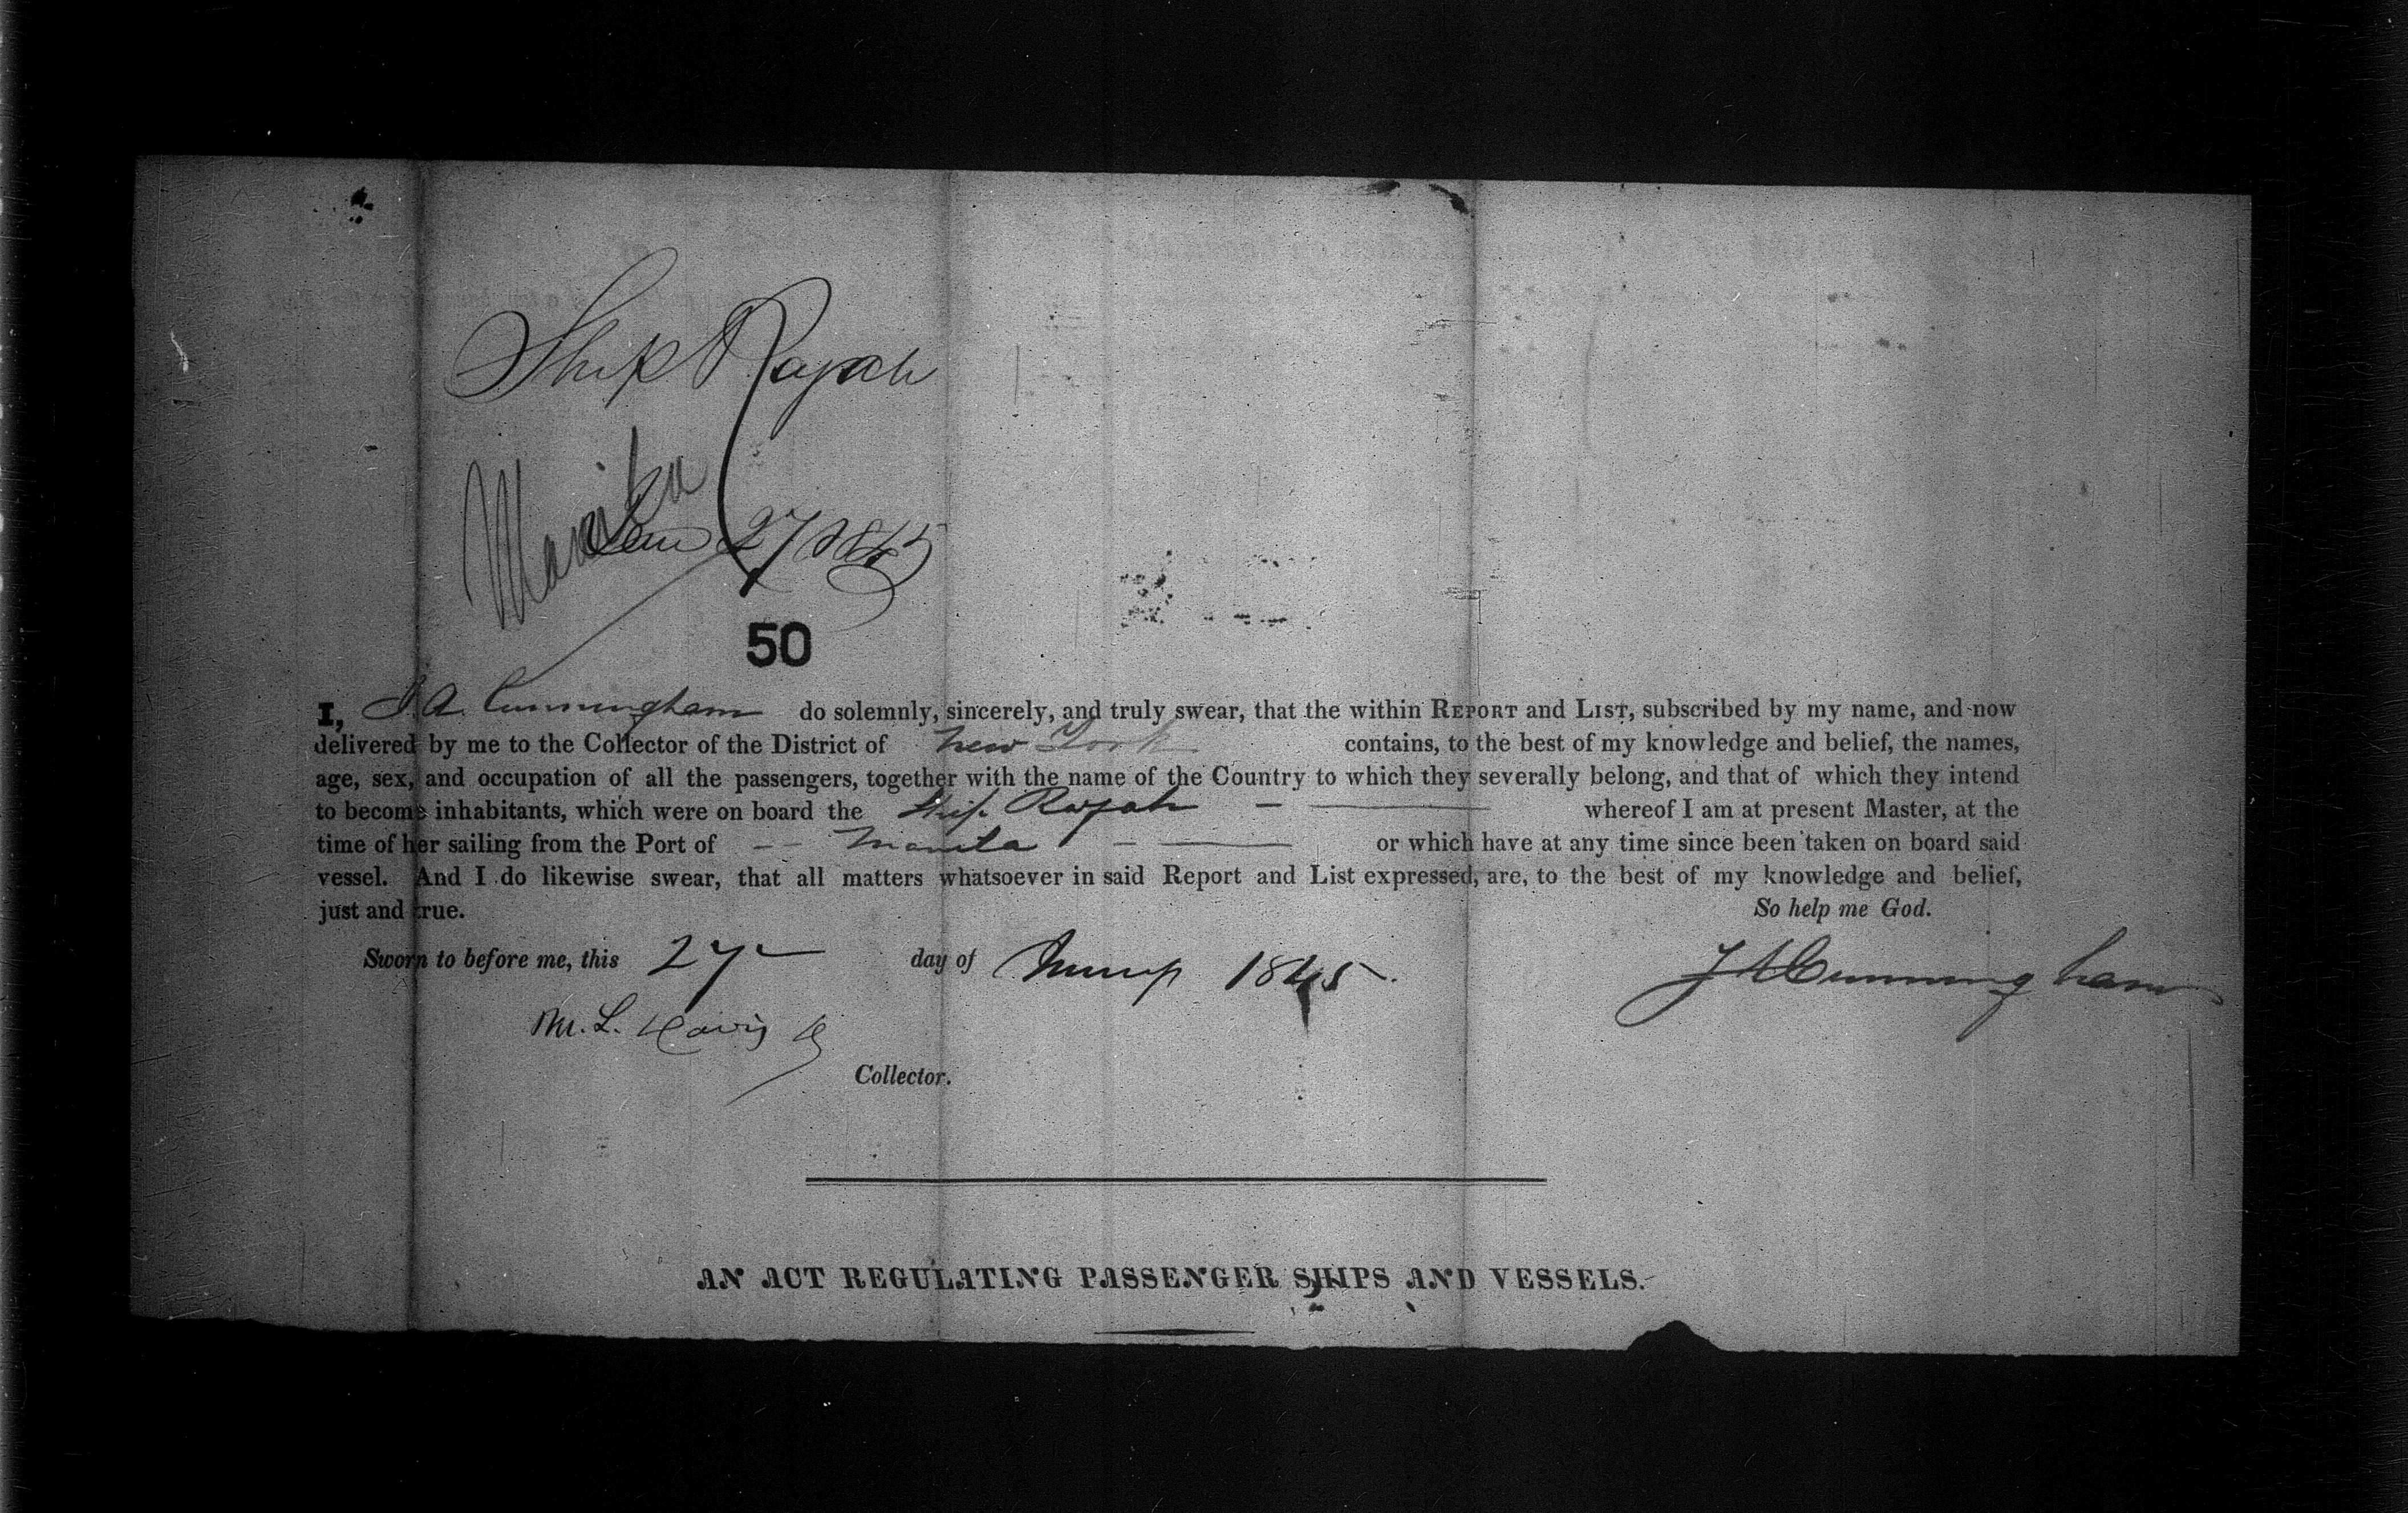 Ship Rajah
Manila
Jan 27 1845
50
I, J. A. Cunningham do solemnly, sincerely, and truly swear, that the within REPORT and LIST, subscribed by my name, and now
delivered by me to the Collector of the District of New York contains, to the best of my knowledge and belief, the names,
age, sex, and occupation of all the passengers, together with the name of the Country to which they severally belong, and that of which they intend
to become inhabitants, which were on board the Ship Rajah — whereof I am at present Master, at the
time of her sailing from the Port of -- Manila - — or which have at any time since been taken on board said
vessel. And I do likewise swear, that all matters whatsoever in said Report and List expressed, are, to the best of my knowledge and belief,
just and true. So help me God.
Sworn to before me, this 27 day of 1845
J A Cunningham
M. L. Davis
Collector.
AN ACT REGULATING PASSENGER SHIPS AND VESSELS.